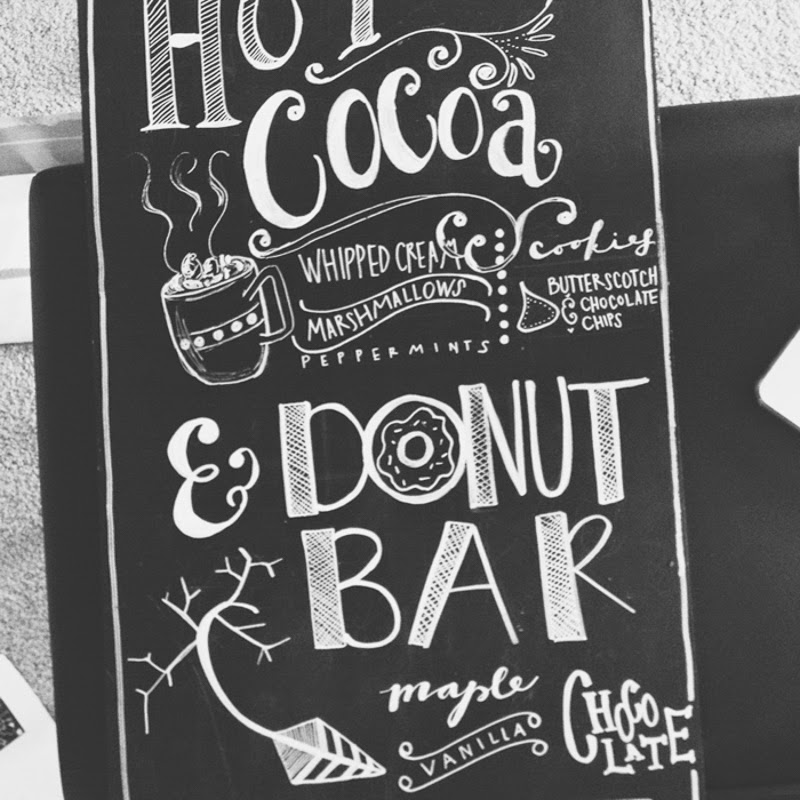 HOT
COCOA
WHIPPED CREAM
MARSHMALLOWS
PEPPERMINTS
cookies
BUTTERSCOTCH
& CHOCOLATE
CHIPS
& DONUT
BAR
maple
VANILLA
CHOCO
LATE